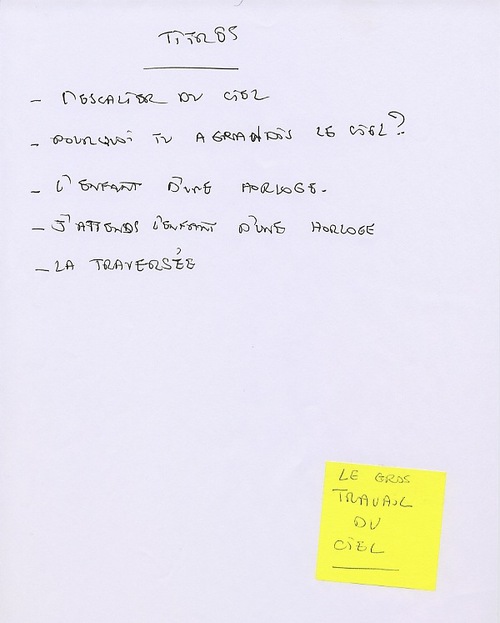 TITRES
- L'ESCALIER DU CIEL
- POURQUOI TU AGRANDIS LE CIEL?
- L'ENFANT D'UNE HORLOGE.
- J'ATTENDS L'ENFANT D'UNE HORLOGE
- LA TRAVERSÉE
LE GROS
TRAVAIL
DU
CIEL